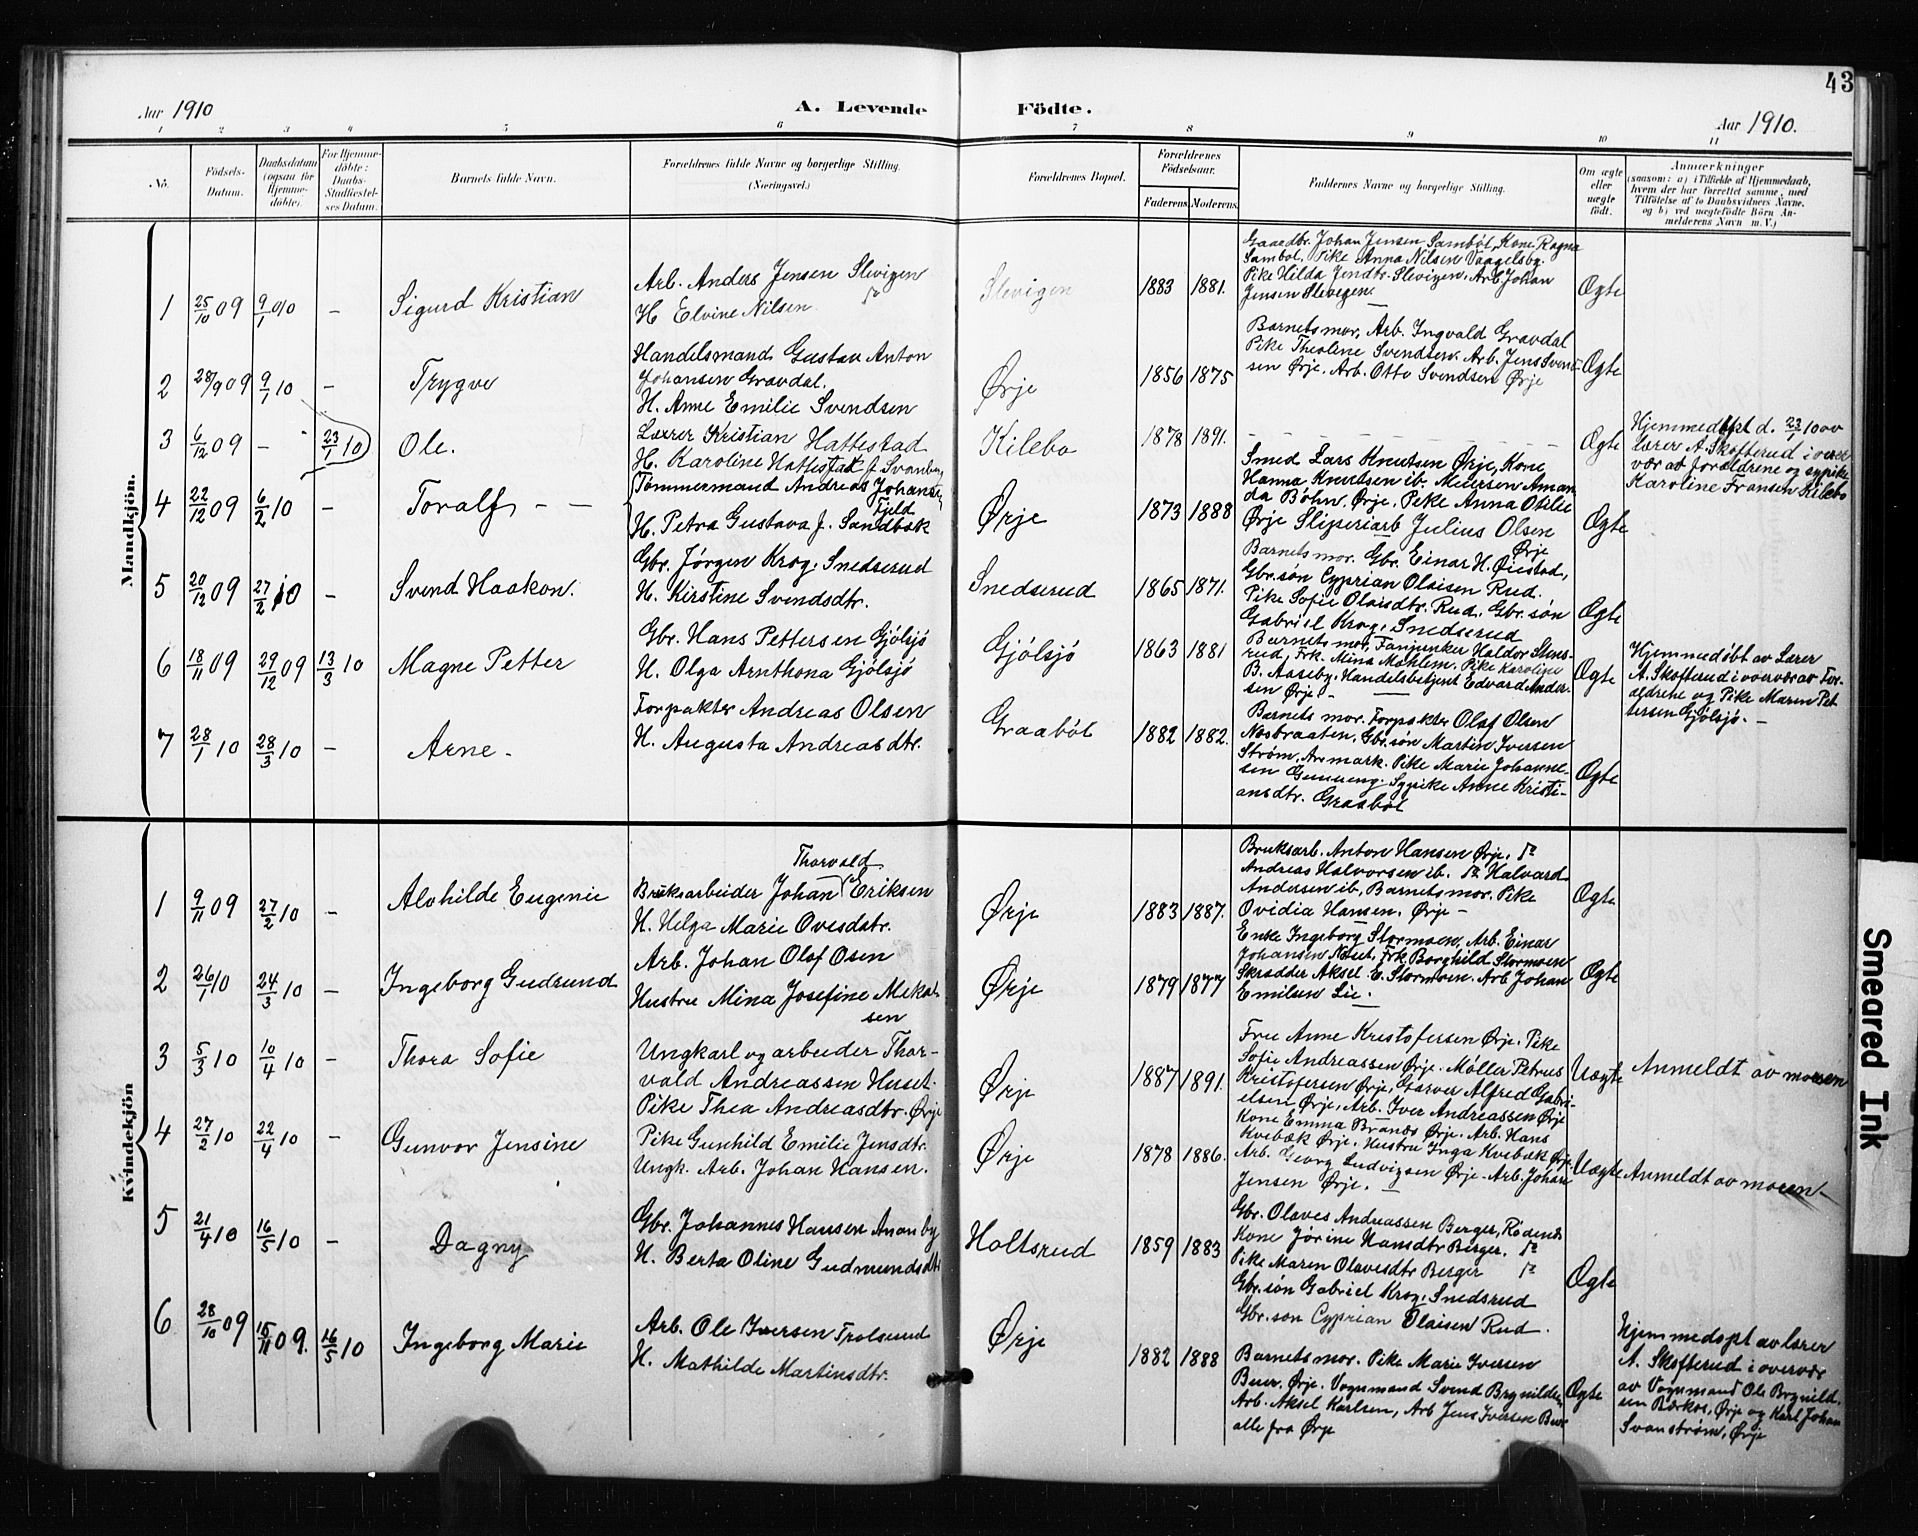 43
Aar 1910
A. Levende
Födte.
Aar 1910.
1 2 3 4 5 6 7 8 9 10 11
No.
Födsels-
Datum.
Daabsdatum
(ogsaa for
Hjemme-
döbte).
For Hjemme-
döbte:
Daabs-
Stadfæstel-
ses Datum.
Barnets fulde Navn.
Forældrenes fulde Navne og borgerlige Stilling.
(Næringsvei.)
Forældrenes Bopæl.
Forældrenes
Födselsaar.
Faderens. Moderens.
Faddernes Navne og borgerlige Stilling.
Om ægte
eller
uægte
födt.
Anmærkninger
(saasom: a) i Tilfælde af Hjemmedaab,
hvem der har forrettet samme, med
Tilföielse af to Daabsvidners Navne,
og b) ved uægtefödte Börn An-
melderens Navn m. V.)
Mandkjön.
1 25/10 09 9/1 010 – Sigurd Kristian
Arb. Anders Jensen Slevigen
H Elvine Nilsen
Slevigen 1883 1881.
Gaardbr. Johan Jensen Sambøl, Kone Ragna
Sambøl, Pike Anna Nilsen Vaagelsby.
Pike Hilda Jendtr. Slevigen. Arb. Johan
Jensen Slevigen.
Ægte
2 28/9 09 9/1 10 – Trygve
Handelsmand Gustav Anton
Johansen Gravdal.
H. Anne Emilie Svendsen
Ørje 1856 1875
Barnets mor, Arb. Ingvald Gravdal
Pike Theoline Svendsen. Arb. Jens Svend-
sen Ørje. Arb. Otto Svendsen Ørje
Ægte
3 6/12 09 – 23/1 10 Ole.
Lærer Kristian Hattestad
H. Karoline Hattestad f. Svanby
Kilebo 1878 1891.
Ægte
Hjemmedøpt d. 23/1 10 av
lærer A. Skofterud i over
vær av forældrene og sypike
Karoline Fransen Kilebo
4 22/12 09 6/2 10 – Toralf – –
Tømmermand Andreas Johansen
Fjeld
H. Petra Gustava f. Sandbæk
Ørje 1873 1888
Smed Lars Knutsen Ørje, Kone
Hanna Knutsen ib. Meiersen Aman
da Bøhn. Ørje. Pike Anna Otilie
Ørje Sliperiarb Julius Olsen
Ørje
Ægte
5 20/12 09 27/2 10 – Svend Haakon.
Gbr. Jørgen Krog. Snedserud
H. Kirstine Svendsdtr.
Snedserud 1865 1871.
Barnets mor. Gbr. Einar H. Øiestad,
Gbr.søn Cyprian Olaisen Rud.
Pike Sofie Olaisdtr. Rud. Gbr. søn
Gabriel Krog. Snedserud
Ægte
6 18/11 09 29/12 09 13/3 10 Magne Petter
Gbr. Hans Pettersen Gjølsjø
H. Olga Arnthona Gjølsjø
Gjølsjø 1863 1881
Barnets mor, Fanjunker Haldor Stens-
rud, Frk. Mina Mohlem. Pike Karoline
B. Aaseby. Handelsbetjent Edvard Ander-
sen Ørje. –
Ægte
Hjemmedøbt av Lærer
A. Skofterud i overvær av For-
ældrene og Pike Maren Pet
tersen Gjølsjø. –
7 28/1 10 28/3 10 – Arne –
Forpakter Andreas Olsen
H. Augusta Andreasdtr.
Graabøl 1882 1882.
Barnets mor. Forpakter Olaf Olsen
Næsbraaten. Gbr.søn Martin Iversen
Strøm, Aremark. Pike Marie Johanne-
sen Gunneng. Sypike Anne Kristi-
ansdtr. Graabøl
Ægte
Kvindekjön
1 9/11 09 27/2 10 – Alvhilde Eugenie
Thorvald
Bruksarbeider Johan Eriksen
H. Helga Marie Ovesdatr.
Ørje 1883 1887.
Bruksarb. Anton Hansen Ørje. do
Andreas Halvorsen ib. do Halvard
Andersen ib, Barnets mor. Pike
Ovidia Hansen. Ørje –
Ægte
2 26/1 10 24/3 10 – Ingeborg Gudrund
Arb. Johan Olaf Osen
Hustru Mina Josefine Mikal-
sen
Ørje 1879 1877
Enke Ingeborg Stormoen, Arb. Einar
Johansen Næset, Frk. Borghild Stormoen
Skrædder Aksel E. Stormoen. Arb Johan
Emilsen Lie. –
Ægte
3 5/3 10 10/4 10 – Thora Sofie
Ungkarl og arbeider Thor-
vald Andreassen Huset.
Pike Thea Andreasdtr. Ørje
Ørje 1887 1891.
Fru Anne Kristofersen Ørje. Pike
Sofie Andreassen Ørje. Møller Petrus
Kristofersen Ørje, Garver Alfred Gabri-
elsen Ørje, Arb. Iver Andreassen Ørje
Uægte
Anmeldt av moren
4 27/2 10 22/4 10 – Gunvor Jensine
Pike Gunhild Emilie Jensdtr.
Ungk. Arb. Johan Hansen.
Ørje 1878 1886.
Kone Emma Brandes Ørje. Arb. Hans
Kvebæk Ørje. Hustru Inga Kvebæk Ørje
Arb. Georg Ludvigsen Ørje – Arb. Johan
Jensen Ørje. –
Uægte
Anmeldt av moren –
5 21/4 10 16/5 10 – Dagny
Gbr. Johannes Hansen Ananby
H. Berta Oline Gudmundsdtr
Holtsrud 1859 1883
Gbr. Olaves Andreassen Berger, Rødenes
Kone Jørine Hansdtr Berger. do
Pike Maren Olavesdtr Berger do
Gbr. søn Gabriel Krog. Snedsrud
Gbr. søn Cyprian Olaisen Rud.
Ægte
6 28/10 09 15/11 09. 16/5 10 Ingeborg Marie
Arb. Ole Iversen Trolsund
H. Mathilde Martinsdtr.
Ørje 1882 1888
Barnets mor. Pike Marie Iversen
Buer. Ørje. Vognmand Svend Brynildsen
Arb. Aksel Karlsen, Arb Jens Iversen Buer
alle fra Ørje
Ægte
Hjemmedøpt av lærer
A. Skofterud i overvær
av Vognmand Ole Brynild-
sen Bækos, Ørje og Karl Johan
Svanstrøm, Ørje
Smeared Ink